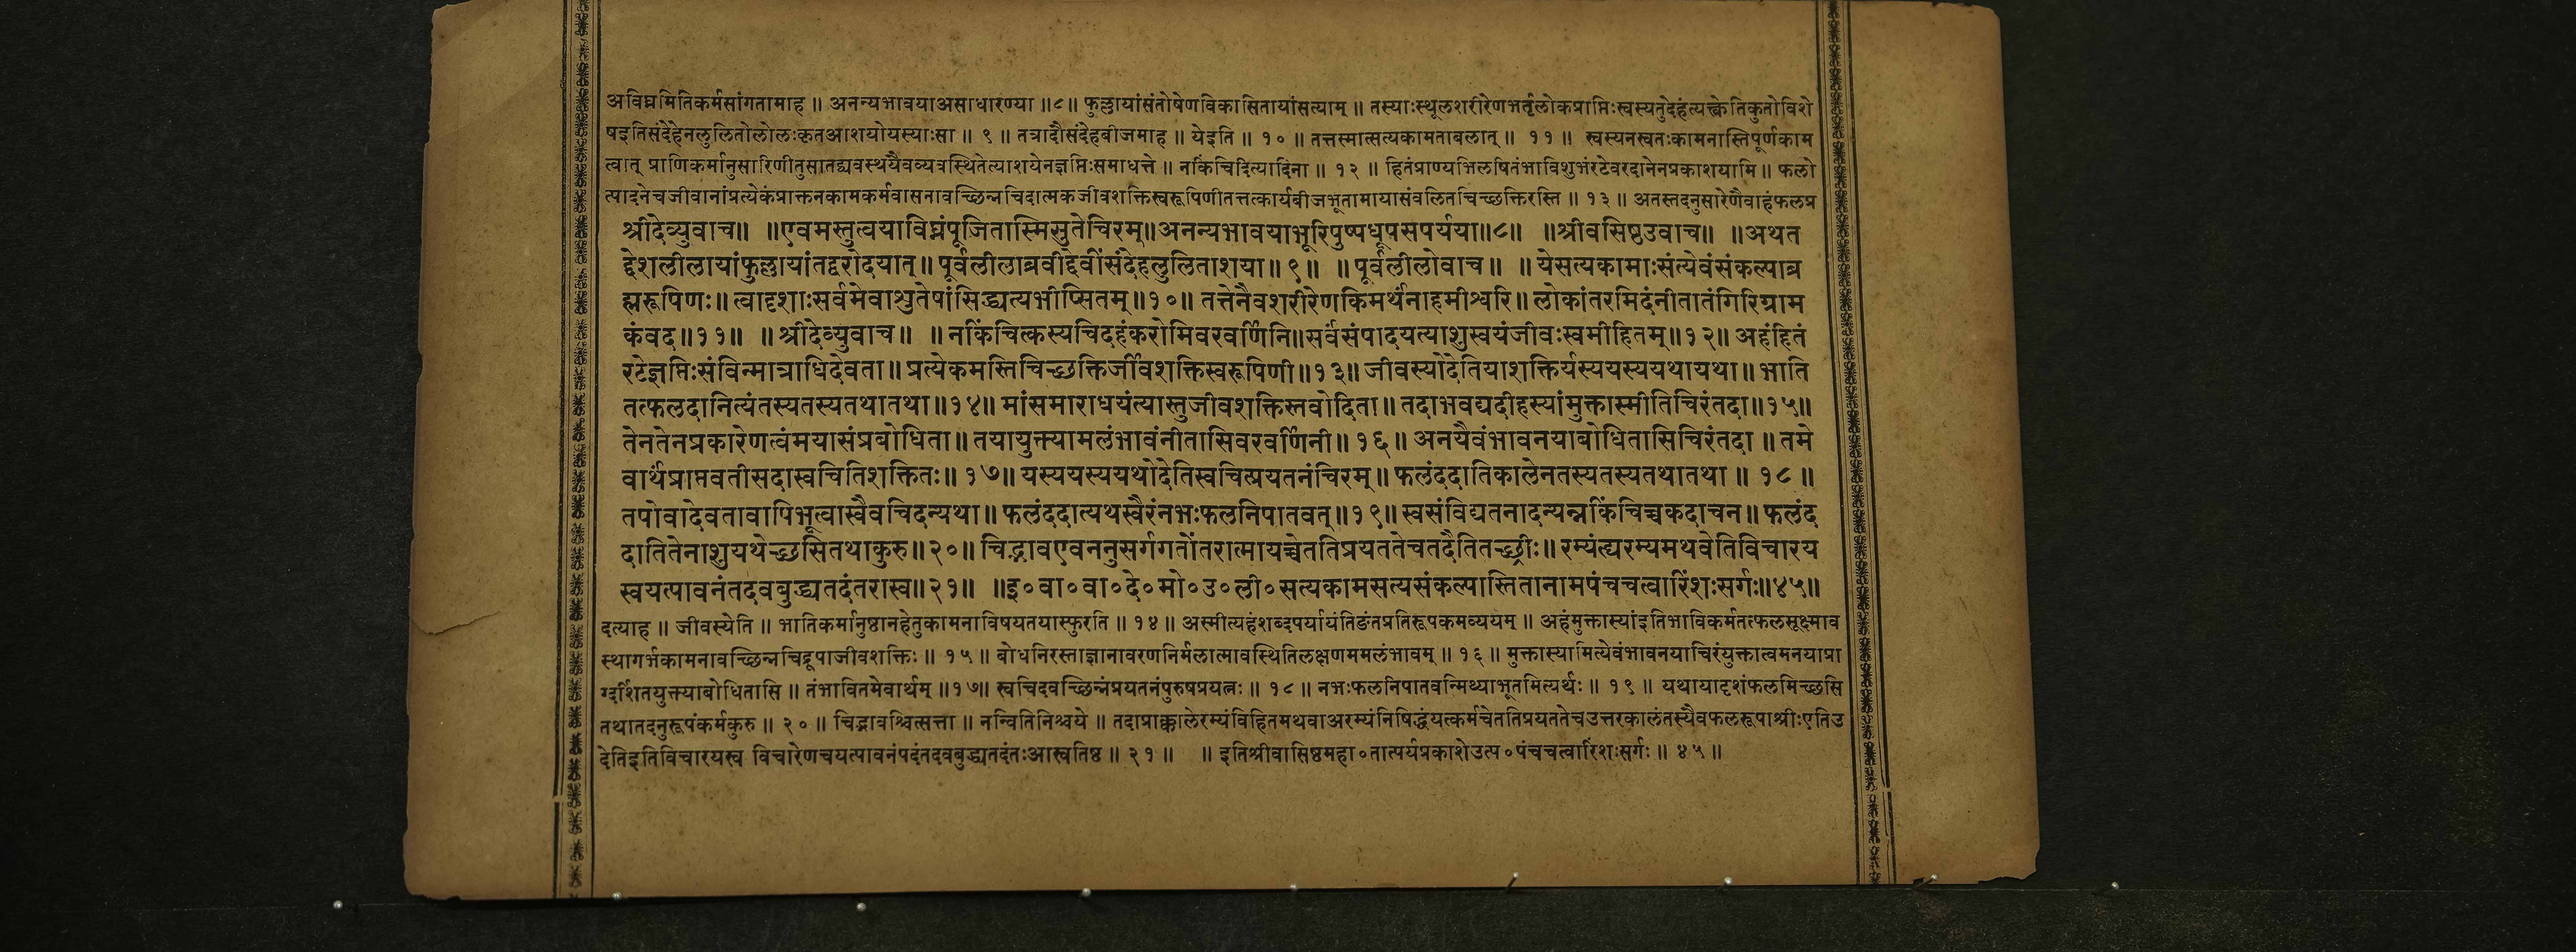 अविघ्नमितिकर्मसांगतामाह ॥ अनन्यभावयाअसाधारण्या ॥८॥ फुल्लायांसंतोषेणविकासितायांसत्याम् ॥ तस्याःस्थूलशरीरेणभर्तृलोकप्राप्तिःस्वस्यतुदेहंत्यक्त्वेतिकुतोविशे
षइतिसंदेहेनलुलितोलोलःकृतआशयोयस्याःसा ॥ ९ ॥ तत्रादौसंदेहबीजमाह ॥ येइति ॥ १० ॥ तत्तस्मात्सत्यकामताबलात् ॥ ११ ॥ स्वस्यनस्वतःकामनास्तिपूर्णकाम
त्वात् प्राणिकर्मानुसारिणीतुसातद्व्यवस्थयैवव्यवस्थितेत्याशयेनज्ञप्तिःसमाधत्ते ॥ नकिंचिदित्यादिना ॥ १२ ॥ हितंप्राण्यभिलषितंभाविशुभंरटेवरदानेनप्रकाशयामि ॥ फलो
त्पादनेचजीवानांप्रत्येकंप्राक्तनकामकर्मवासनावच्छिन्नचिदात्मकजीवशक्तिस्वरूपिणीतत्तत्कार्यबीजभूतामायासंवलितचिच्छक्तिरस्ति ॥ १३ ॥ अतस्तदनुसारेणैवाहंफलप्र
श्रीदेव्युवाच॥ ॥एवमस्तुत्वयाविघ्नंपूजितास्मिसुतेचिरम्॥अनन्यभावयाभूरिपुष्पधूपसपर्यया॥८॥ ॥श्रीवसिष्ठउवाच॥ ॥अथत
द्देशलीलायांफुल्लायांतद्वरोदयात्॥ पूर्वलीलाब्रवीद्देवींसंदेहलुलिताशया॥ ९॥ ॥पूर्वलीलोवाच॥ ॥ येसत्यकामाःसंत्येवंसंकल्पाब्र
ह्मरूपिणः॥ त्वादृशाःसर्वमेवाशुतेषांसिद्ध्यत्यभीप्सितम्॥१०॥ तत्तेनैवशरीरेणकिमर्थंनाहमीश्वरि॥ लोकांतरमिदंनीतातंगिरिग्राम
कंवद॥११॥ ॥श्रीदेव्युवाच॥ ॥नकिंचित्कस्यचिदहंकरोमिवरवर्णिनि॥सर्वंसंपादयत्याशुस्वयंजीवःस्वमीहितम्॥१२॥ अहंहितं
रटेज्ञप्तिःसंविन्मात्राधिदेवता॥ प्रत्येकमस्तिचिच्छक्तिर्जीवशक्तिस्वरूपिणी॥१३॥ जीवस्योदेतियाशक्तिर्यस्ययस्ययथायथा॥ भाति
तत्फलदानित्यंतस्यतस्यतथातथा॥१४॥ मांसमाराधयंत्यास्तुजीवशक्तिस्तवोदिता॥ तदाभवद्यदीहस्यांमुक्तास्मीतिचिरंतदा॥१५॥
तेनतेनप्रकारेणत्वंमयासंप्रबोधिता॥ तयायुक्त्यामलंभावंनीतासिवरवर्णिनी॥ १६॥ अनयैवंभावनयाबोधितासिचिरंतदा॥ तमे
वार्थंप्राप्तवतीसदास्वचितिशक्तितः॥ १७॥ यस्ययस्ययथोदेतिस्वचित्प्रयतनंचिरम्॥ फलंददातिकालेनतस्यतस्यतथातथा॥ १८ ॥
तपोवादेवतावापिभूत्वास्वैवचिदन्यथा॥ फलंददात्यथस्वैरंनभःफलनिपातवत्॥१९॥ स्वसंविद्यतनादन्यन्नकिंचिच्चकदाचन॥ फलंद
दातितेनाशुयथेच्छसितथाकुरु॥२०॥ चिद्भावएवननुसर्गगतोंतरात्मायच्चेततिप्रयततेचतदैतितच्छ्रीः॥ रम्यंह्यरम्यमथवेतिविचारय
स्वयत्पावनंतदवबुद्ध्यतदंतरास्व॥२१॥ ॥इ०वा०वा०दे०मो०उ०ली०सत्यकामसत्यसंकल्पास्तितानामपंचचत्वारिंशःसर्गः॥४५॥
दत्याह ॥ जीवस्येति ॥ भातिकर्मानुष्ठानहेतुकामनाविषयतयास्फुरति ॥ १४ ॥ अस्मीत्यहंशब्दपर्यायंतिङंतप्रतिरूपकमव्ययम् ॥ अहंमुक्तास्यांइतिभाविकर्मतत्फलसूक्ष्माव
स्थागर्भकामनावच्छिन्नचिद्रूपाजीवशक्तिः ॥ १५ ॥ बोधनिरस्ताज्ञानावरणनिर्मलात्मावस्थितिलक्षणममलंभावम् ॥ १६ ॥ मुक्तास्यामित्येवंभावनयाचिरंयुक्तात्वमनयाप्रा
ग्दर्शितयुक्त्याबोधितासि ॥ तंभावितमेवार्थम् ॥१७॥ स्वचिदवच्छिन्नंप्रयतनंपुरुषप्रयत्नः ॥ १८ ॥ नभःफलनिपातवन्मिथ्याभूतमित्यर्थः ॥ १९ ॥ यथायादृशंफलमिच्छसि
तथातदनुरूपंकर्मकुरु ॥ २० ॥ चिद्भावश्चित्सत्ता ॥ नन्वितिनिश्चये ॥ तदाप्राक्कालेरम्यंविहितमथवाअरम्यंनिषिद्धंयत्कर्मचेततिप्रयततेचउत्तरकालंतस्यैवफलरूपाश्रीःएतिउ
देतिइतिविचारयस्व विचारेणचयत्पावनंपदंतदवबुद्ध्यतदंतःआस्वतिष्ठ ॥ २१ ॥ ॥ इतिश्रीवासिष्ठमहा०तात्पर्यप्रकाशेउत्प०पंचचत्वारिंशःसर्गः ॥ ४५ ॥